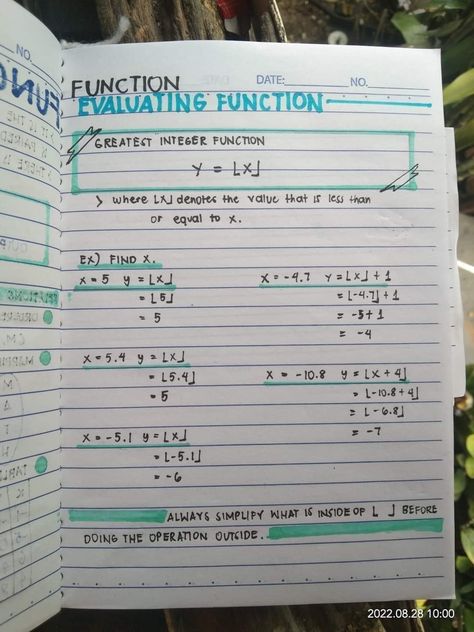 FUNCTION DATE: NO.
EVALUATING FUNCTION
GREATEST INTEGER FUNCTION
Y = ⌊X⌋
> where ⌊X⌋ denotes the value that is less than
or equal to x.
EX) FIND X.
X = 5 Y = ⌊X⌋
= ⌊5⌋
= 5
X = -4.7 Y = ⌊X⌋ + 1
= ⌊-4.7⌋ + 1
= -5 + 1
= -4
X = 5.4 Y = ⌊X⌋
= ⌊5.4⌋
= 5
X = -10.8 Y = ⌊X + 4⌋
= ⌊-10.8 + 4⌋
= ⌊-6.8⌋
= -7
X = -5.1 Y = ⌊X⌋
= ⌊-5.1⌋
= -6
ALWAYS SIMPLIFY WHAT IS INSIDE OF ⌊ ⌋ BEFORE
DOING THE OPERATION OUTSIDE.
2022.08.28 10:00